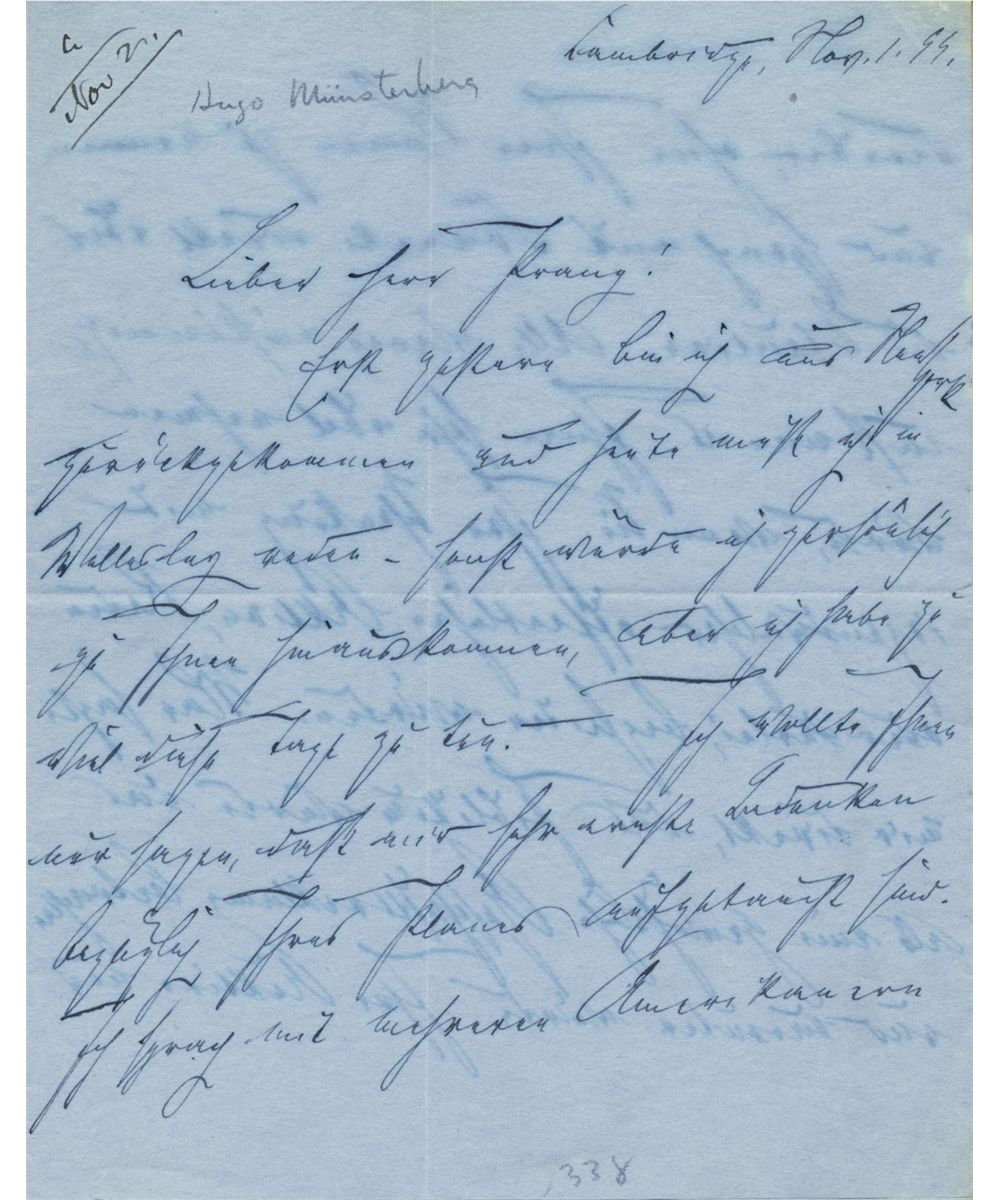 a
Nov 2.
Hugo Münsterberg
Cambridge, Nov. 1. 99.
Lieber Herr Prang!
Erst gestern bin ich aus New
York
zurückgekommen und heute muß ich in
Wellesley reden – sonst würde ich persönlich
zu Ihnen hinauskommen, aber ich habe zu
viel diese Tage zu tun. — Ich wollte Ihnen
nur sagen, daß mir sehr ernste Bedenken
bezüglich Ihres Planes aufgetaucht sind.
Ich sprach mit mehreren Amerikanern
338